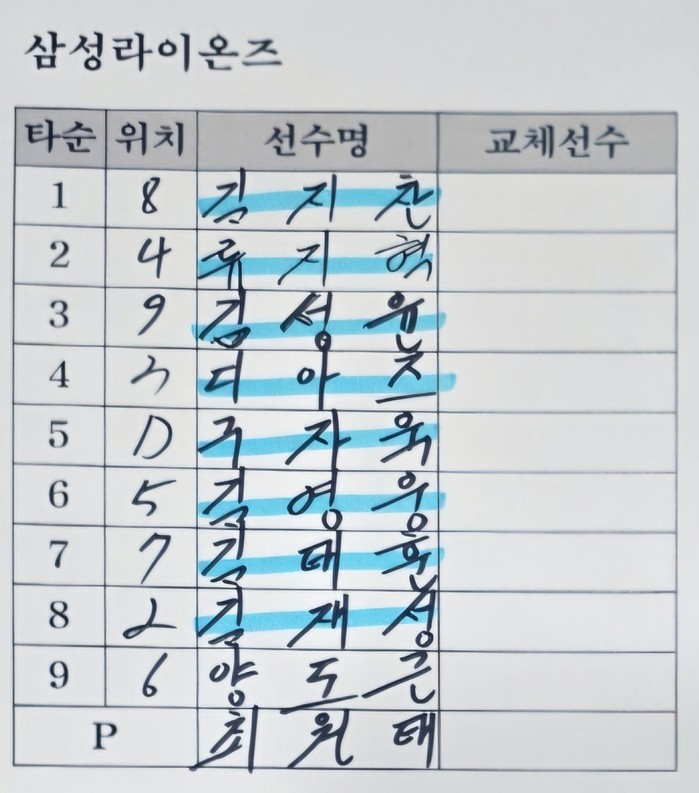 삼성라이온즈
타순 위치 선수명 교체선수
1 8 김지찬
2 4 류지혁
3 9 김성윤
4 3 디아즈
5 D 구자욱
6 5 김영웅
7 7 김태훈
8 2 김재성
9 6 양도근
P 최원태